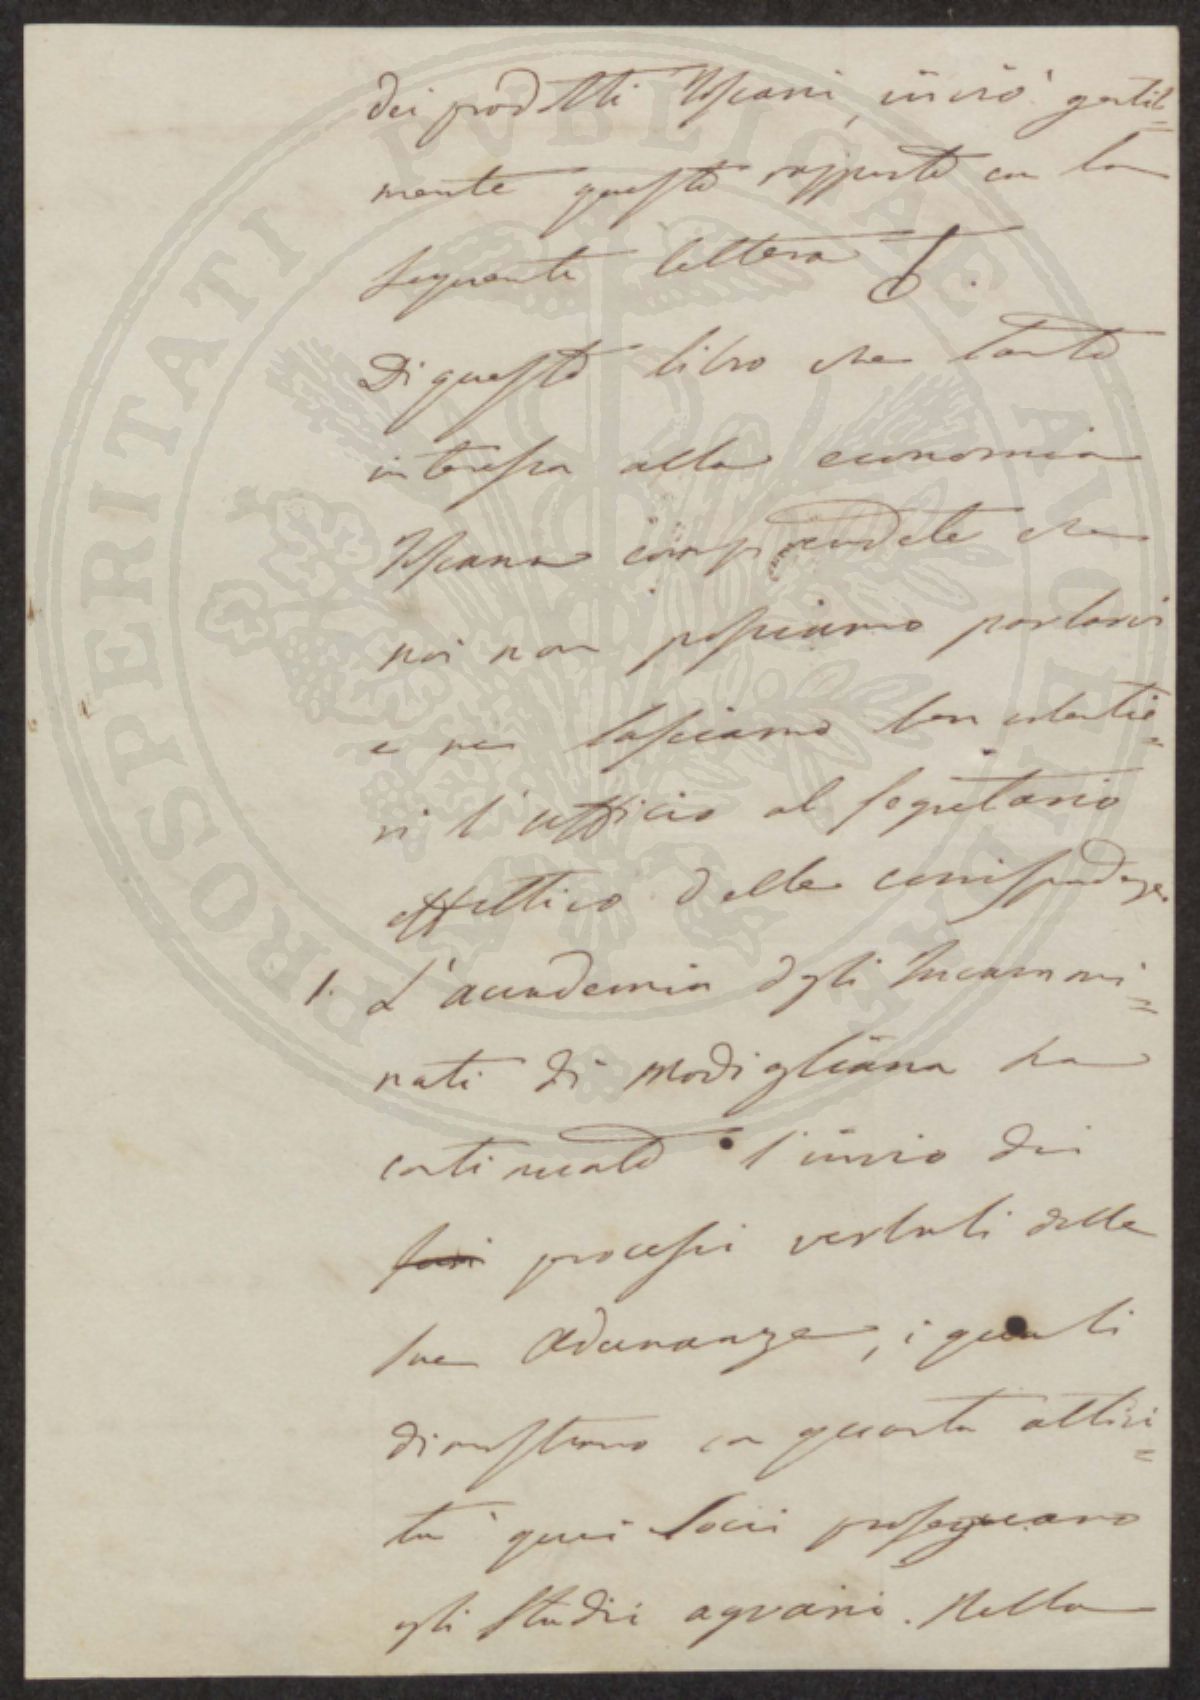 dei prodotti Toscani, inviò gentil=
mente questo rapporto con la
seguente lettera
Di questo libro che tanto
interessa alla economia
Toscana comprendete che
noi non possiamo parlarvi
e ne lasciamo ben volentie=
ri l'ufficio al segretario
effettivo delle corrispondenze
1. L'accademia degli Incammi=
nati di Modigliana ha
continuato l'invio dei
suoi processi verbali delle
sue Adunanze, i quali
dimostrano con quanta attivi=
tà quei Socii proseguano
gli Studii agrarii. Nella
PROSPERITATI PVBLICAE AVGENDAE